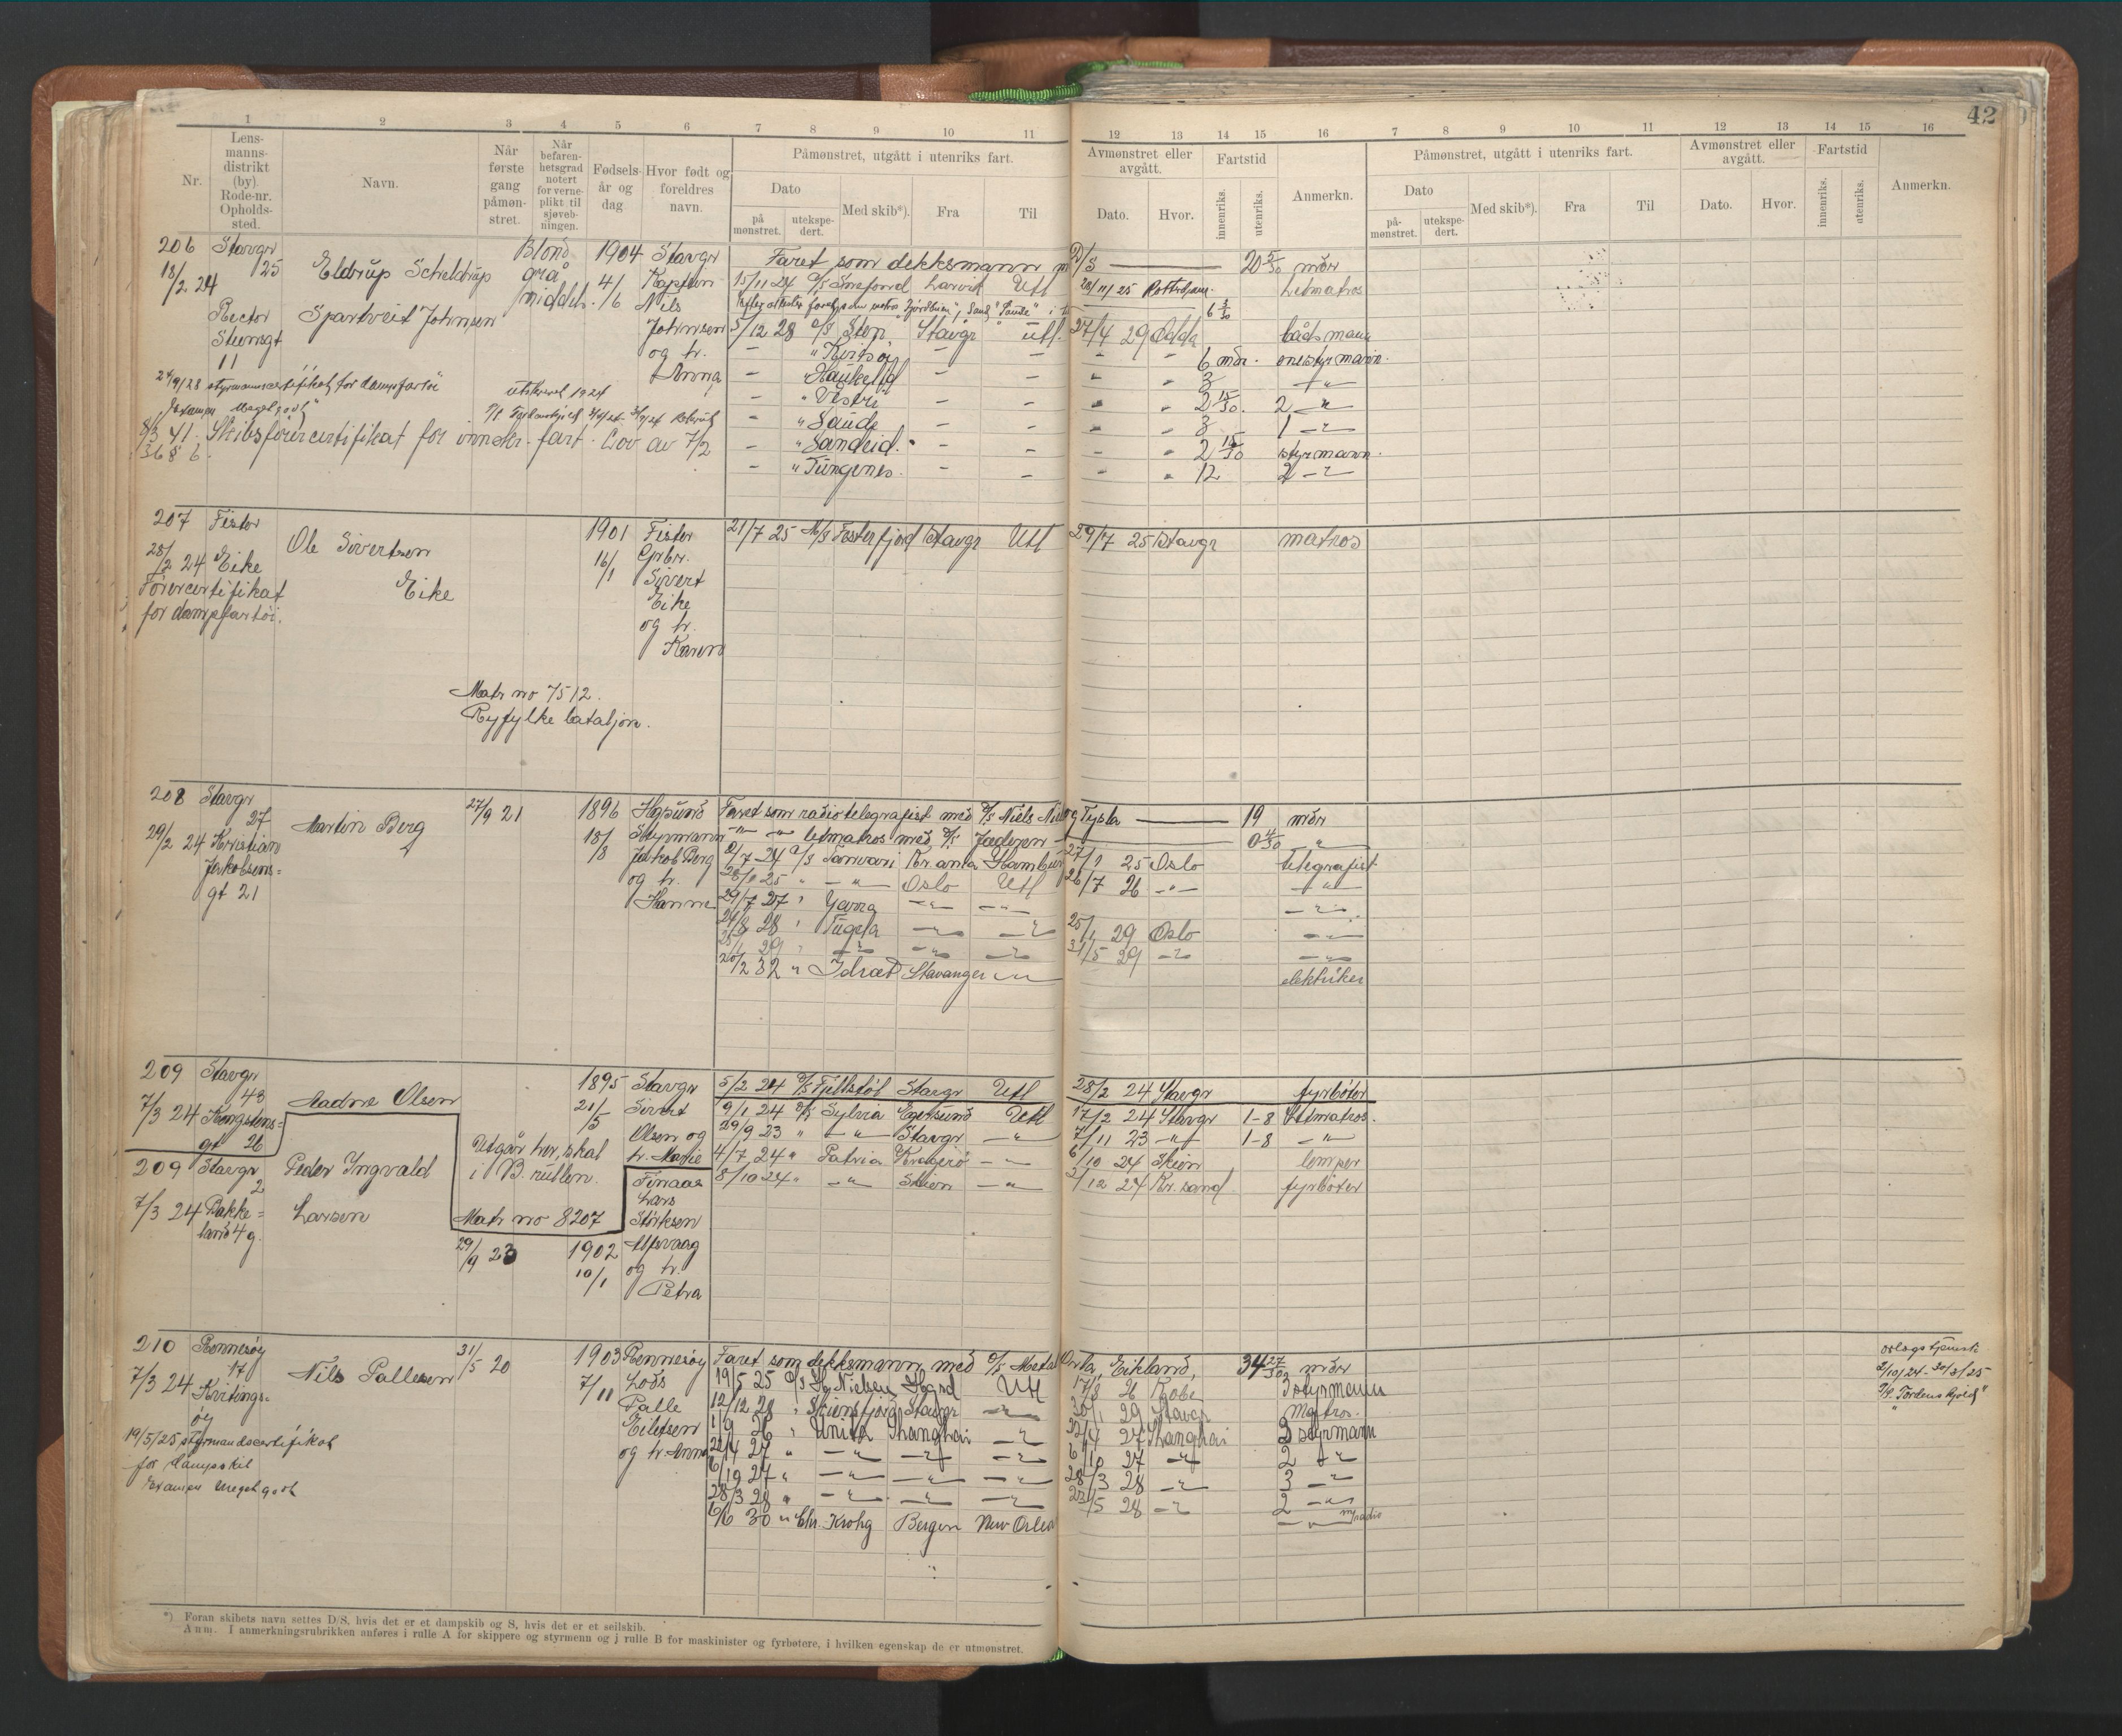 42
1 2 3 4 5 6 7 8 9 10 11 12 13 14 15 16 7 8 9 10 11 12 13 14 15 16
Nr.
Lens-
manns-
distrikt
(by).
Rode-nr.
Opholds-
sted.
Navn.
Når
første
gang
påmøn-
stret.
Når
befaren-
hetsgrad
notert
for verne-
plikt til
sjøveb-
ningen.
Fødsels-
år og
dag
Hvor født og
foreldres
navn.
Påmønstret, utgått i utenriks fart.
Dato
på
mønstret.
utekspe-
dert.
Med skib*).
Fra
Til
Avmønstret eller
avgått.
Dato.
Hvor.
Fartstid
innenriks.
utenriks.
Anmerkn.
Påmønstret, utgått i utenriks fart.
Dato
på-
mønstret.
utekspe-
dert.
Med skib*).
Fra
Til
Avmønstret eller
avgått.
Dato.
Hvor.
Fartstid
innenriks.
utenriks.
Anmerkn.
206 Stavgr 25
18/2 24
Rector
Steensgt
11
Eldrup Scheldrup
Spartveit Johnsen
Blond
grå
middels
1904
4/6
Stavgr
Kaptein
Nils
Johnsen
og h.
Anna
Faret som dekksmann m D/S — 20 5/30 mdr
15/11 24 D/S Snefond Larvik Utl 28/11 25 Rotterdam Letmatros
6 3/30
5/12 28 D/S Sten Stavgr utl. 27/4 29 Odda båtsmann
— " Kvitsøy — — " " 6 mdr. enestyrmann.
— " Haukelid — — " " 3 — " —
— " Vestri — — " " 2 15/30. 2 — " —
— " Sauda — — " " 3 1 — " —
— " Sandeid. — — " " 2 15/30 styrmann.
— " Tungenes. — — " " 12 2 — " —
24/9/28 styrmannscertifikat for dampfartøi
Examen Meget godt
utskrevet 1924
8/3 41. Skibsførercertifikat for innenr. fart. Lov av 7/2
36 § 6.
207 Fister
28/2 24 Eike
Førercertifikat
for dampfartøi.
Ole Sivertsen
Eike
1901
16/1
Fister
Grbr.
Sivert
Eike
og h.
Karen
21/7 25 M/S Fosterfjord Stavgr Utl 29/7 25 Stavgr matros
Matr no 7512.
Ryfylke bataljon.
208 Stavgr
27
29/2 24 Kristian
Jakobsens=
gt 21
Martin Berg
27/9 21
1896
18/8
Hgsund
Styrmann
Jakob Berg
og h.
Hanne
Faret som radiotelegrafist med D/S Niels Niel og Tysla — 19 mdr
— " — — " — letmatros med D/S Jæderen — 0 4/30 "
2/7 24 D/S Kr.ania Hamburg 27/2 25 Oslo telegrafist
25 " — " — Oslo Utl 26/7 26 — " — — " —
29/7 27 " — " — — " — — " —
24/8 28 " Tugela — " — — " — 25/1 29 Oslo — " —
25/1 29 " — " — — " — — " — 31/5 29 — " — — " —
20/2 32 " Idræt Stavanger — " — elektriker
209 Stavgr
43
7/3 24 Kongstens=
gt 26
Olsen
1895
21/5
Stavgr
Sivert
Olsen og
h. Marie
5/2 24 D/S Fjellstøl Stavgr Utl 28/2 24 Stavgr fyrbøter
Utgår her, skal
i B. rullen.
Matr no 8207
209 Stavgr
2
7/3 24 Bakke=
land 4 g.
Peder Ingvald
Larsen
29/9 23
1902
10/1
Finaas
Lars
Størksen
Alsvaag
og h.
Petra
9/1 24 D/S Sylvia Egersund Utl 17/2 24 Stavgr 1-8 Letmatros.
29/9 23 " — " — Stavgr. — " — 7/11 23 — " — 1-8 — " —
4/7 24 " Patria Kragerö — " — 6/10 24 Skien lemper
8/10 24 " — " — Skien — " — 2/12 24 Kr.sand fyrbøter
210 Rennesøy
17
7/3 24 Kvitings=
øy
Nils Pallesen
31/5 20
1903
7/11
Rennesøy
Lods
Palle
Eiletsen
og h. Anna
Faret som dekksmann med D/S Eikland, 34 27/30 mdr
19/5 25 D/S Hgsd Utl 17/8 26 Kobe 3 styrmann
12/12 28 " Skiensfjord Stavgr — " — 30/1 29 Stavgr Matros.
1/9 26 " Unita Shanghai — " — 22/4 27 Shanghai 3 styrmann
22/4 27 " — " — — " — — " — 6/10 27 — " — 2 — " —
6/10 27 " — " — — " — — " — 28/3 28 — " — 3 — " —
28/3 28 " — " — — " — — " — 23/5 28 — " — 2 — " —
6/6 30 " Chr. Krohg Bergen New Orlea — " — m/radio
orlogstjeneste
2/10/24 - 20/3/25
P/S "Tordenskjold"
19/5/25 styrmandscertifikat
for dampskib
Examen Meget godt
*) Foran skibets navn settes D/S, hvis det er et dampskib og S, hvis det er et seilskib.
Anm. I anmerkningsrubrikken anføres i rulle A for skippere og styrmenn og i rulle B for maskinister og fyrbøtere, i hvilken egenskap de er utmønstret.